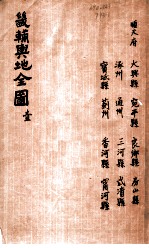 畿輔輿地全圖 壹
順天府 大興縣 宛平縣 良鄉縣 房山縣
涿州 通州 三河縣 武清縣
寶坻縣 薊州 香河縣 甯河縣